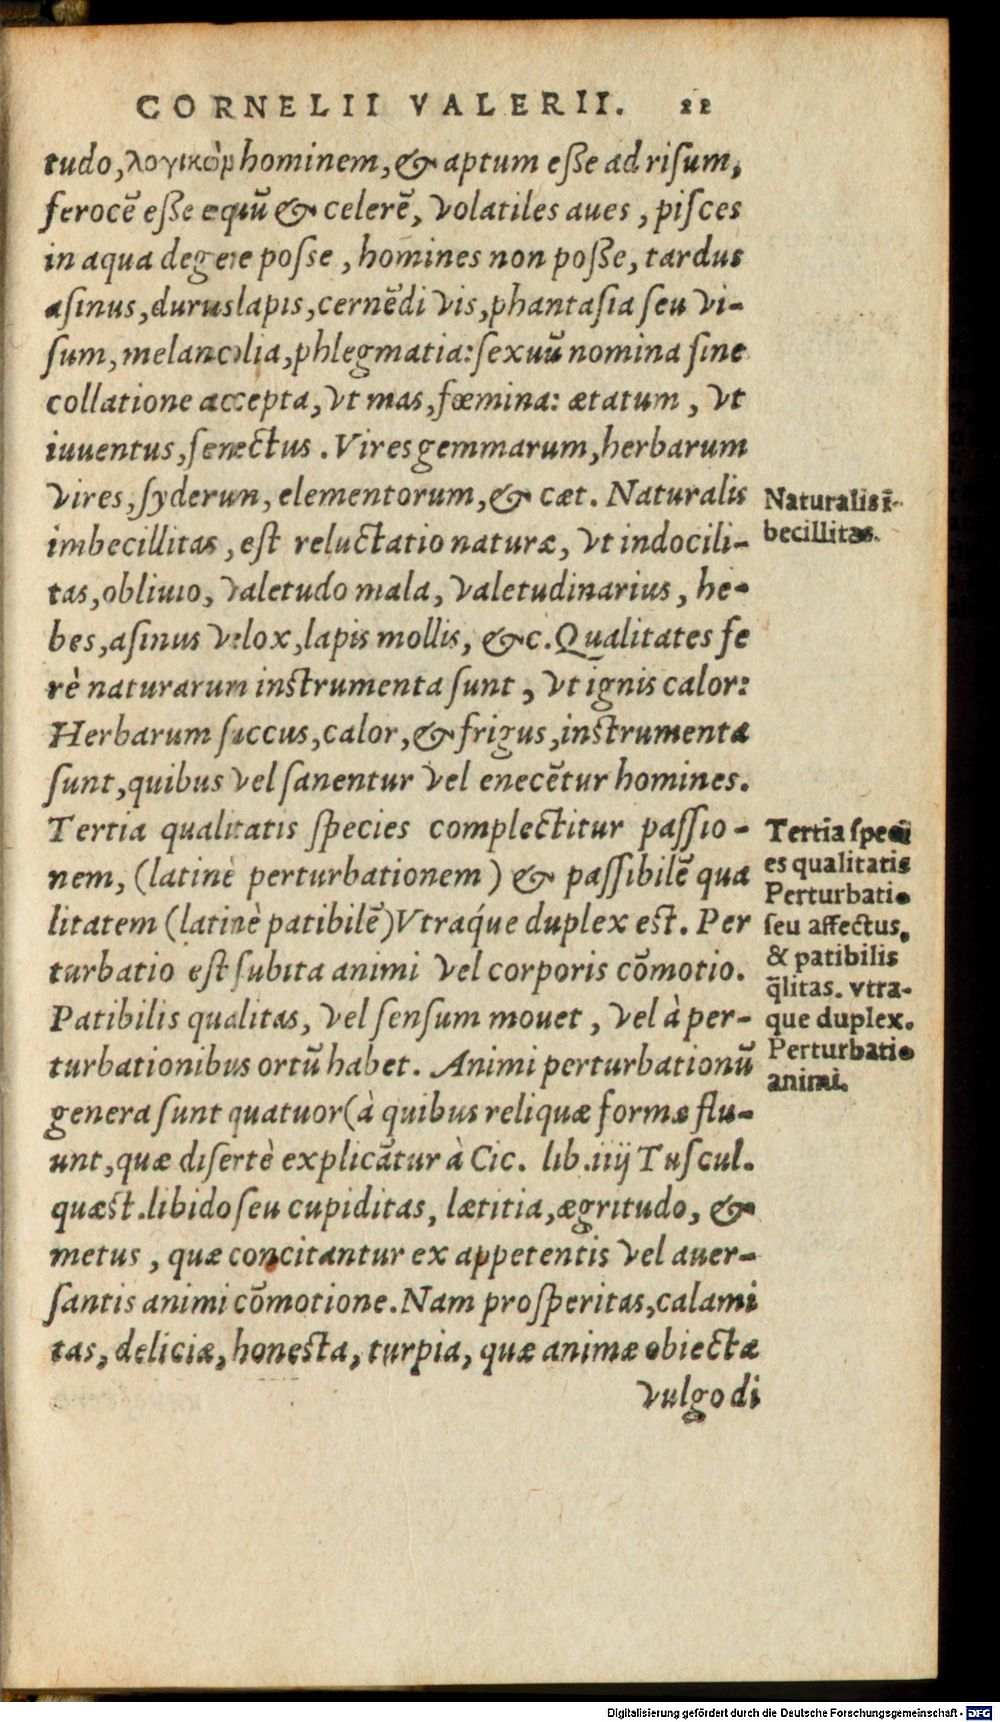 CORNELII VALERII. 22
tudo, λογικὸν hominem, & aptum eſſe ad riſum,
ferocē eſſe equū & celerē, volatiles aues, piſces
in aqua degere poſse, homines non poſſe, tardus
aſinus, durus lapis, cernēdi vis, phantaſia ſeu vi-
ſum, melancolia, phlegmatia: ſexuū nomina ſine
collatione accepta, vt mas, fœmina: ætatum, vt
iuuentus, ſenectus. Vires gemmarum, herbarum
vires, ſyderum, elementorum, & cæt. Naturalis
imbecillitas, eſt reluctatio naturæ, vt indocili-
tas, obliuio, valetudo mala, valetudinarius, he-
bes, aſinus velox, lapis mollis, &c. Qualitates fe
rè naturarum inſtrumenta ſunt, vt ignis calor:
Herbarum ſuccus, calor, & frigus, inſtrumenta
ſunt, quibus vel ſanentur vel enecētur homines.
Tertia qualitatis ſpecies complectitur paſſio-
nem, (latinè perturbationem) & paſſibilē qua
litatem (latinè patibilē) Vtraq́ue duplex eſt. Per
turbatio eſt ſubita animi vel corporis cōmotio.
Patibilis qualitas, vel ſenſum mouet, vel à per-
turbationibus ortū habet. Animi perturbationū
genera ſunt quatuor (à quibus reliquæ formæ flu-
unt, quæ diſertè explicātur à Cic. lib. iiij Tuſcul.
quæſt. libido ſeu cupiditas, lætitia, ægritudo, &
metus, quæ concitantur ex appetentis vel auer-
ſantis animi cōmotione. Nam proſperitas, calami
tas, deliciæ, honeſta, turpia, quæ animæ obiecta
vulgo di
Naturalis ī-
becillitas.
Tertia ſpeci
es qualitatis
Perturbatio
ſeu affectus,
& patibilis
q̄litas. vtra-
que duplex.
Perturbatio
animi.
Digitalisierung gefördert durch die Deutsche Forschungsgemeinschaft - DFG